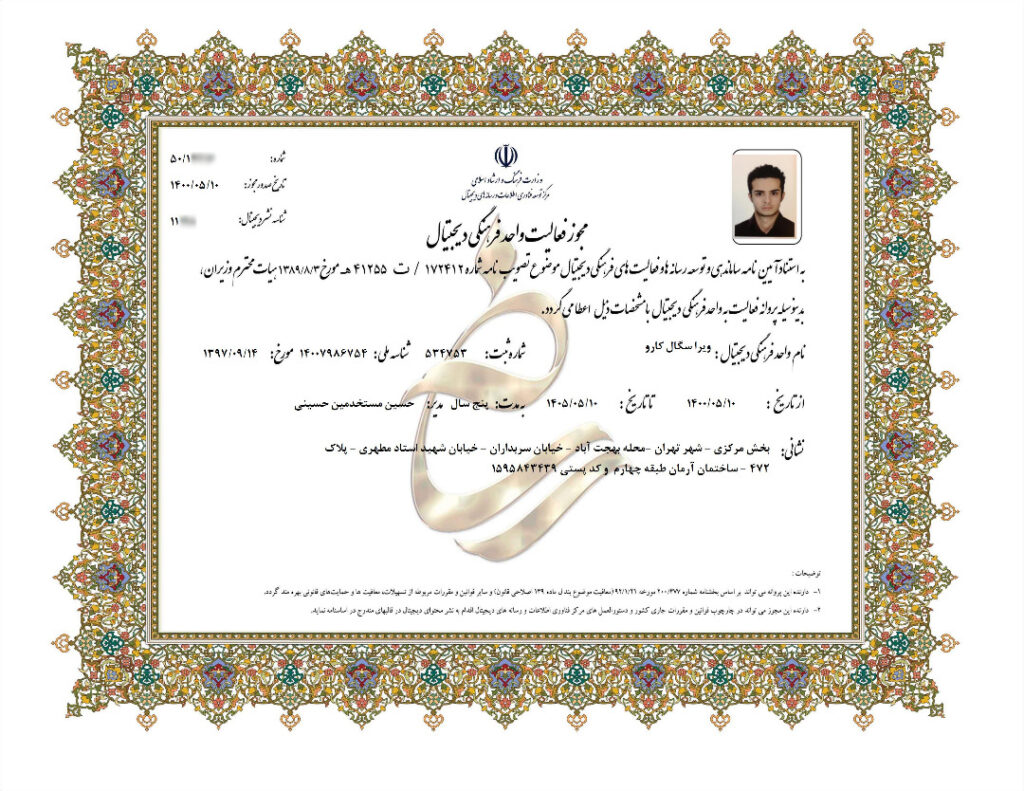 شماره: ۵۰/۱
تاریخ صدور مجوز: ۱۴۰۰/۰۵/۱۰
شناسه نشر دیجیتال: ۱۱
وزارت فرهنگ و ارشاد اسلامی
مرکز توسعه فناوری اطلاعات و رسانه های دیجیتال
مجوز فعالیت واحد فرهنگی دیجیتال
به استناد آیین نامه ساماندهی و توسعه رسانه ها و فعالیت های فرهنگی دیجیتال موضوع تصویب نامه شماره ۱۷۲۴۱۲ / ت ۴۱۲۵۵ هـ مورخ ۱۳۸۹/۸/۳ هیات محترم وزیران،
بدینوسیله پروانه فعالیت به واحد فرهنگی دیجیتال با مشخصات ذیل اعطا می گردد.
نام واحد فرهنگی دیجیتال : ویرا سگال کارو شماره ثبت: ۵۳۴۷۵۳ شناسه ملی: ۱۴۰۰۷۹۸۶۷۵۴ مورخ: ۱۳۹۷/۰۹/۱۴
از تاریخ : ۱۴۰۰/۰۵/۱۰ تا تاریخ : ۱۴۰۵/۰۵/۱۰ به مدت: پنج سال مدیر: حسین مستخدمین حسینی
نشانی: بخش مرکزی - شهر تهران -محله بهجت آباد - خیابان سربداران - خیابان شهید استاد مطهری - پلاک
۴۷۲ - ساختمان آرمان طبقه چهارم و کد پستی ۱۵۹۵۸۴۳۴۳۹
توضیحات :
۱- دارنده این پروانه می تواند بر اساس بخشنامه شماره ۲۰۰/۳۷۷ مورخه ۹۲/۱/۲۱(معافیت موضوع بند ل ماده ۱۳۹ اصلاحی قانون) و سایر قوانین و مقررات مربوطه از تسهیلات، معافیت ها و حمایت‌های قانونی بهره مند گردد.
۲- دارنده این مجوز می تواند در چارچوب قوانین و مقررات جاری کشور و دستورالعمل های مرکز فناوری اطلاعات و رسانه های دیجیتال اقدام به نشر محتوای دیجیتال در قالبهای مندرج در اساسنامه نماید.